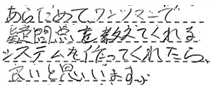 あらためてワンツーマンで
疑問点を教えてくれる
システムを作ってくれたら、
良いと思います。